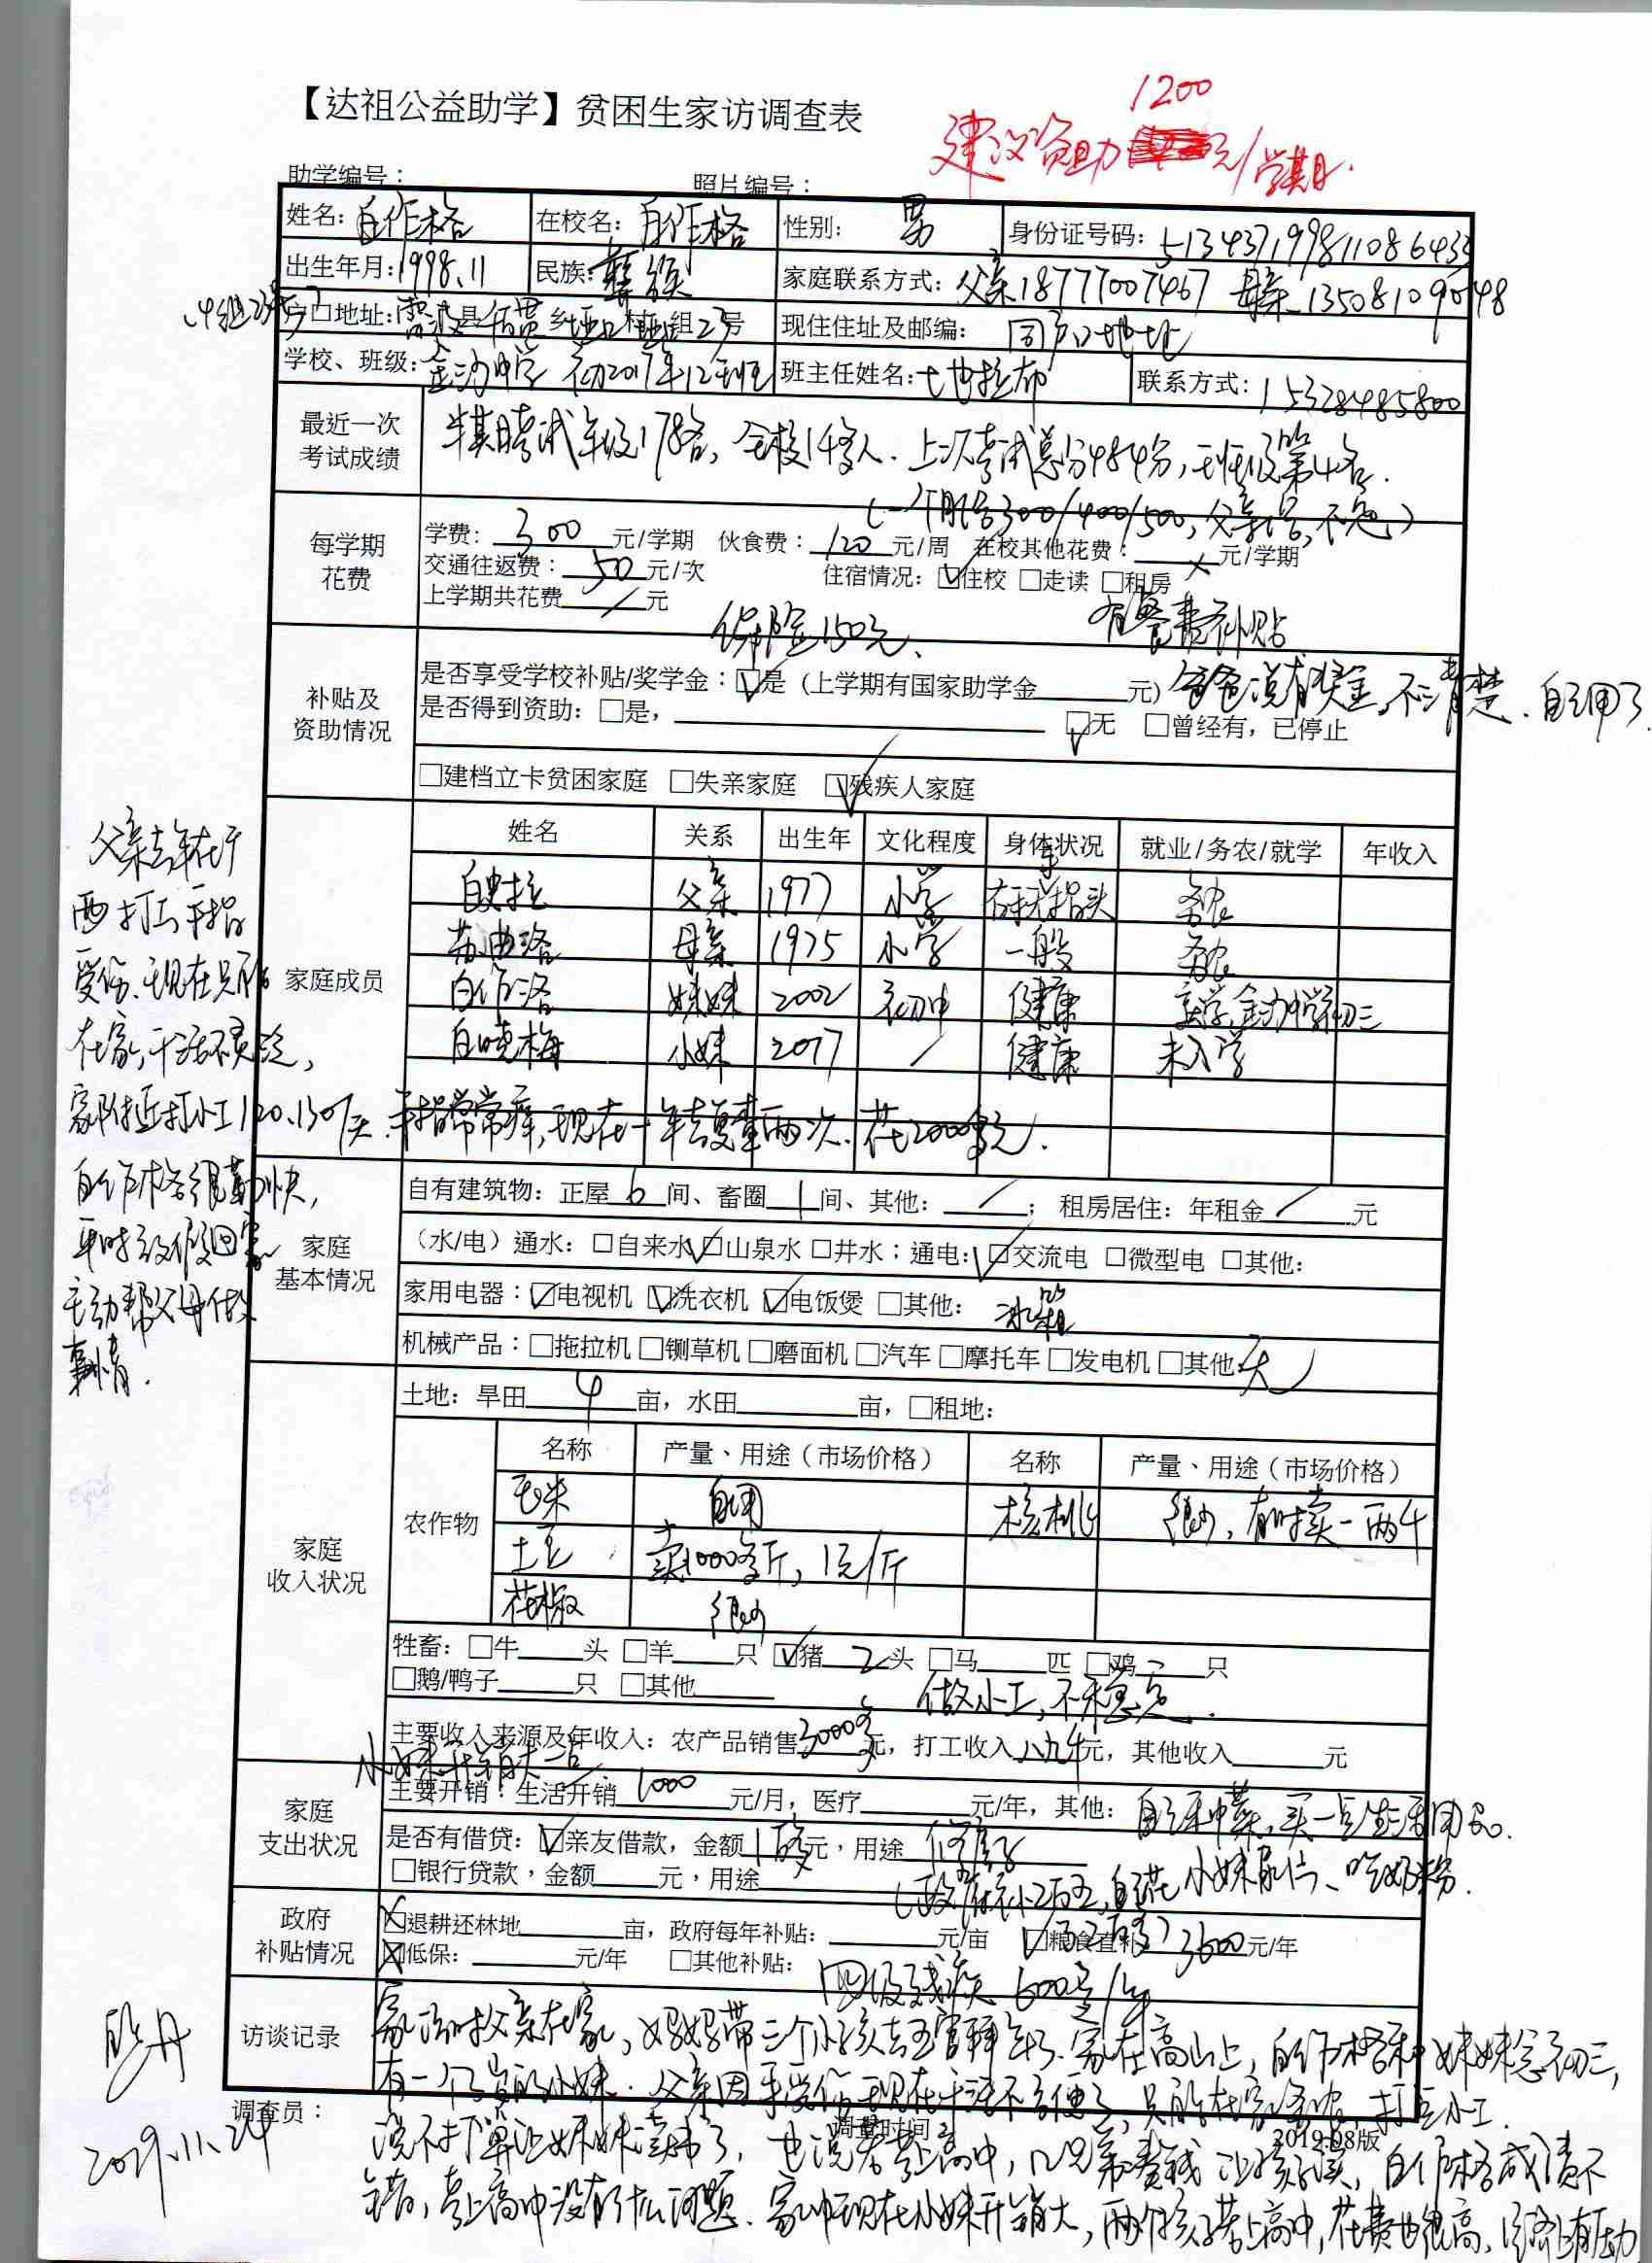 1200
【达祖公益助学】贫困生家访调查表
建议资助 元/学期.
助学编号：
照片编号：
姓名：自作格 在校名：自作格 性别：男 身份证号码：513437199811086433
出生年月：1998.11 民族：彝族 家庭联系方式：父亲18777007467 母亲
户口地址：雷波县 乡 村 组23号 现住住址及邮编：同户口地址
学校、班级：金沙中学 初2017年12班 班主任姓名： 联系方式：15328485800
最近一次考试成绩 半期考试年级178名，全校1千多人．上次考试总分484分，班级第4名．
（一个月给300/400/500，父亲给，不定．）
每学期花费 学费：300元/学期 伙食费：120元/周 在校其他花费：×元/学期
交通往返费：50元/次 住宿情况：☑住校 □走读 □租房
上学期共花费／元
保险150元、 有餐费补贴
补贴及资助情况 是否享受学校补贴/奖学金：☑是（上学期有国家助学金 元）爸爸说有奖金，不清楚．自己用了．
是否得到资助：□是， ☑无 □曾经有，已停止
□建档立卡贫困家庭 □失亲家庭 ☑残疾人家庭
家庭成员 姓名 关系 出生年 文化程度 身体状况 就业/务农/就学 年收入
父亲 1977 小学 务农
苏曲洛 母亲 1975 小学 一般 务农
自作洛 妹妹 2002 初中 健康 上学，金沙中学初三
自晓梅 小妹 2017 ／ 健康 未入学
父亲去年在广
西打工，手指
受伤、现在只能
在家，干活不灵活，
家附近打小工120、130/天．手指常常痒，现在一年去复查两次．花2000多元．
自作格很勤快，
平时放假回家
主动帮父母做
事情．
家庭基本情况 自有建筑物：正屋6间、畜圈1间、其他：／；租房居住：年租金／元
（水/电）通水：□自来水 ☑山泉水 □井水；通电：☑交流电 □微型电 □其他：
家用电器：☑电视机 ☑洗衣机 ☑电饭煲 □其他：冰箱
机械产品：□拖拉机 □铡草机 □磨面机 □汽车 □摩托车 □发电机 □其他 无
家庭收入状况 土地：旱田4亩，水田 亩，□租地：
农作物 名称 产量、用途（市场价格） 名称 产量、用途（市场价格）
玉米 自用 核桃 很少，有时卖一两千
土豆 卖1000多斤，1元/斤
花椒 很少
牲畜：□牛 头 □羊 只 ☑猪2头 □马 匹 □鸡 只
□鹅/鸭子 只 □其他
做小工，不稳定．
主要收入来源及年收入：农产品销售3000多元，打工收入八九千元，其他收入 元
小妹开销大一点
家庭支出状况 主要开销：生活开销1000元/月，医疗 元/年，其他：自己种菜，买一点生活用品．
是否有借贷：☑亲友借款，金额1万多元，用途修房子 小妹尿片、吃奶粉．
□银行贷款，金额 元，用途
（政府补2万五，自己花
政府补贴情况 ☒退耕还林地 亩，政府每年补贴： 元/亩 ☑粮食直补3600元/年
☒低保： 元/年 □其他补贴：四级残疾 600多/年
访谈记录 家访时父亲在家，妈妈带三个小孩去 拜年了．家在高山上，自作格和妹妹念初三，
有一个 的小妹．父亲因手受伤现在干活不方便了，只能在家务农，打点小工．
说不打算让妹妹读书了，也说若考上高中，几兄弟凑钱让孩子读，自作格成绩不
错，考上高中没有什么问题．家中现在小妹开销大，两个孩子若上高中，花费也很高，经济上有压力
调查员： 调查时间 2019.08版
2019.11.24